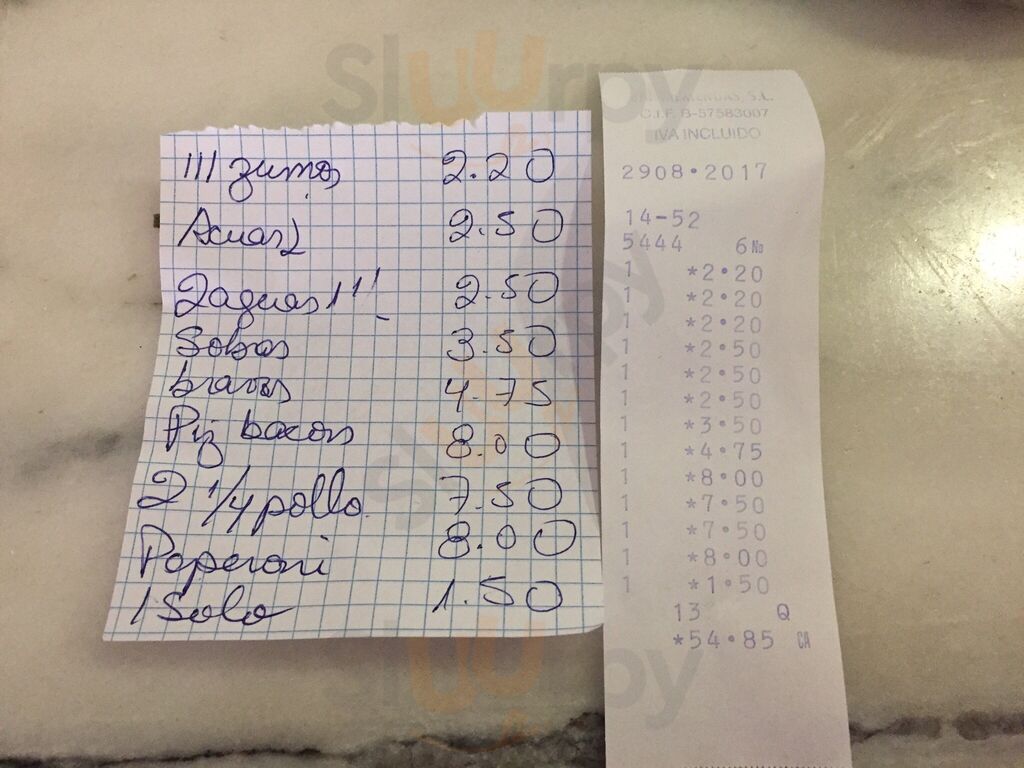 III zumos 2.20
Acuas 2 2.50
2 aguas 1 !! 2.50
Solos 3.50
bravas 4.75
Piz bacon 8.00
2 1/4 pollo. 7.50
Peperoni 8.00
1 Solo 1.50
S.L.
C.I.F. B-57583007
IVA INCLUIDO
2908•2017
14-52
5444 6№
1 *2•20
1 *2•20
1 *2•20
1 *2•50
1 *2•50
1 *2•50
1 *3•50
1 *4•75
1 *8•00
1 *7•50
1 *7•50
1 *8•00
1 *1•50
13 Q
*54•85 CA
Slurpy
Slurpy
Slurpy